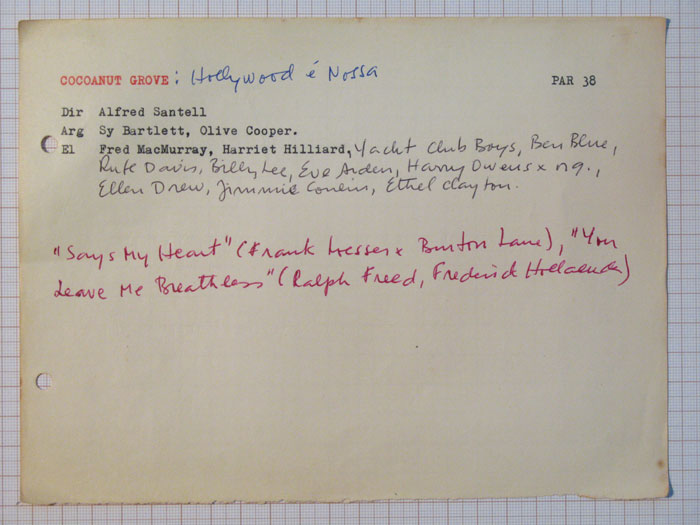 COCOANUT GROVE: Hollywood é Nossa PAR 38
Dir Alfred Santell
Arg Sy Bartlett, Olive Cooper.
El Fred MacMurray, Harriet Hilliard, Yacht Club Boys, Ben Blue,
Rufe Davis, Billy Lee, Eve Arden, Harry Owens x org.,
Ellen Drew, Jimmie Conlin, Ethel Clayton.
"Says My Heart" (Frank Loesser x Burton Lane), "You
Leave Me Breathless" (Ralph Freed, Frederick Hollaender)